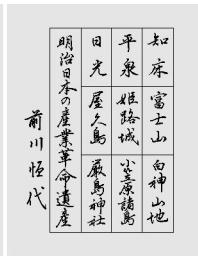 知床 富士山 白神山地
平泉 姫路城 小笠原諸島
日光 屋久島 厳島神社
明治日本の産業革命遺産
前川恒代